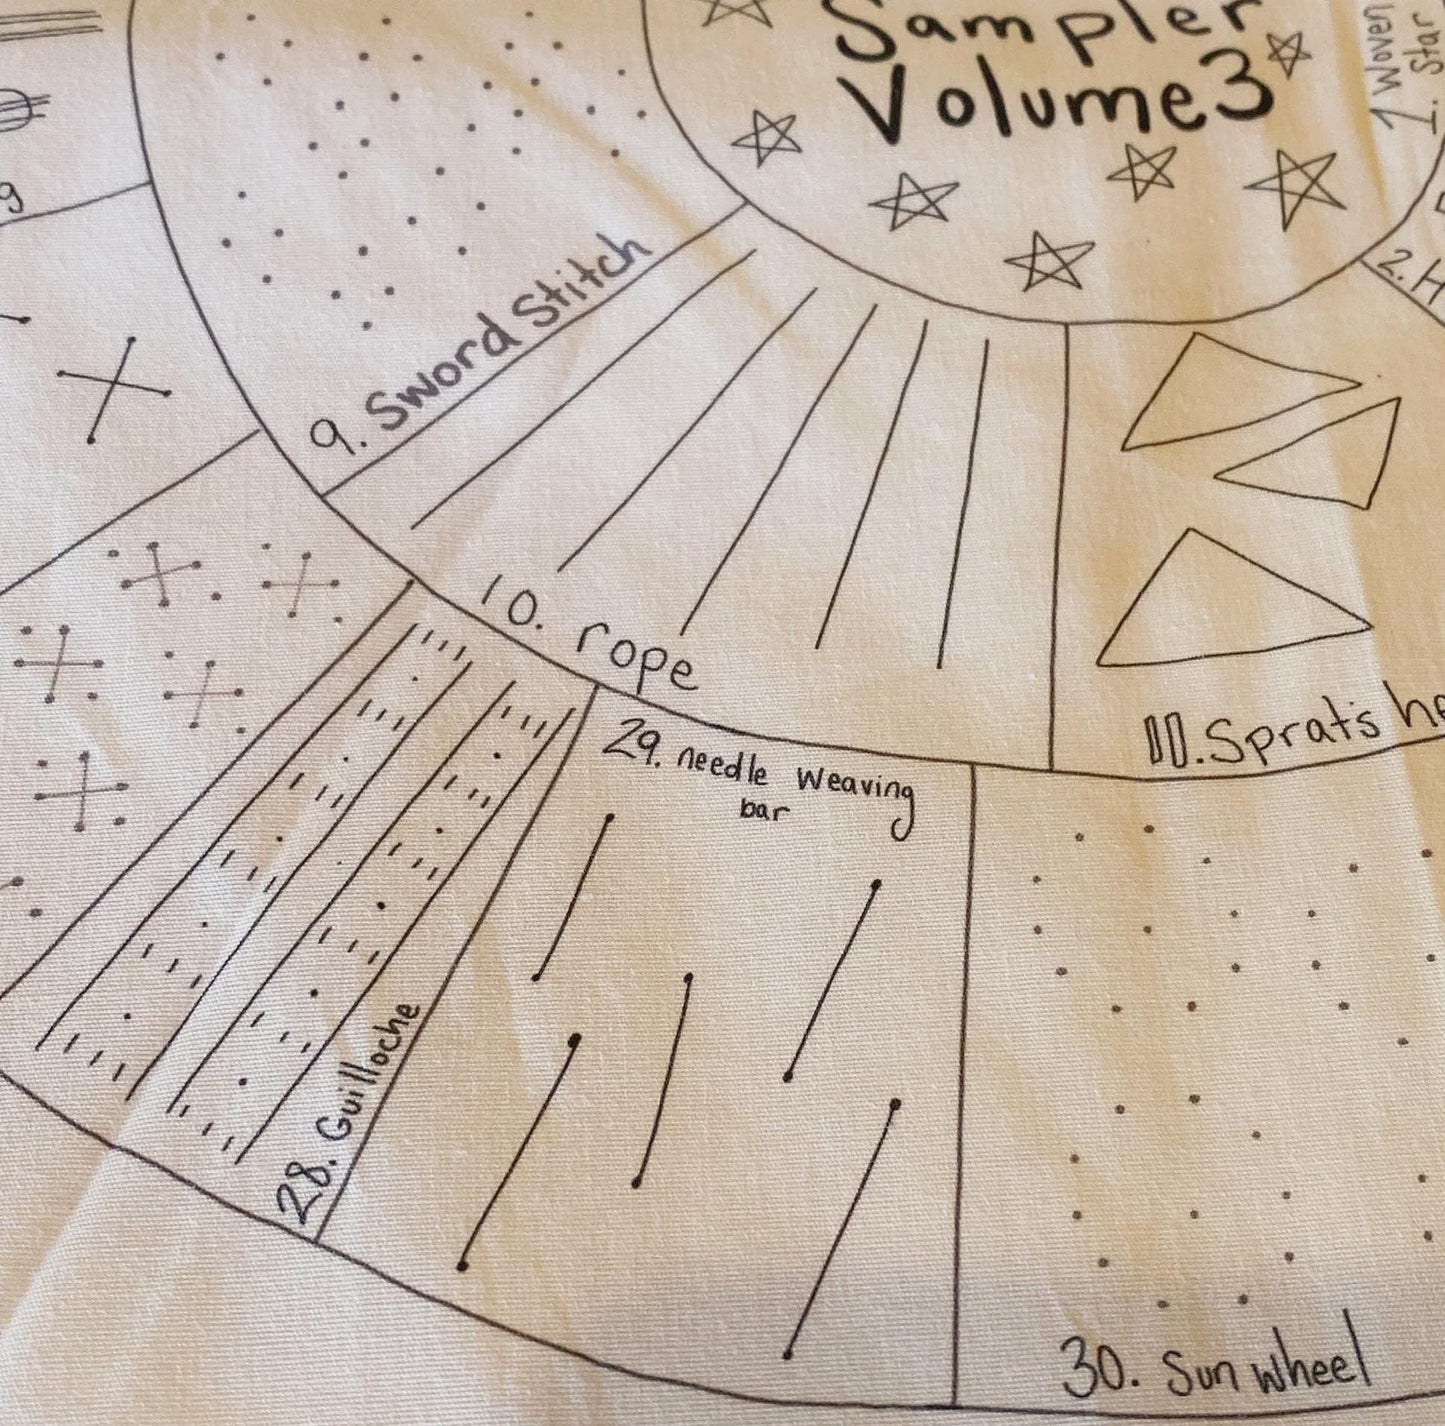 Sampler
Volume 3
1 Woven
1. Star
2. H
9
9. Sword Stitch
10. rope
11. Sprat's he
28. Guilloche
29. needle weaving
bar
30. Sun wheel